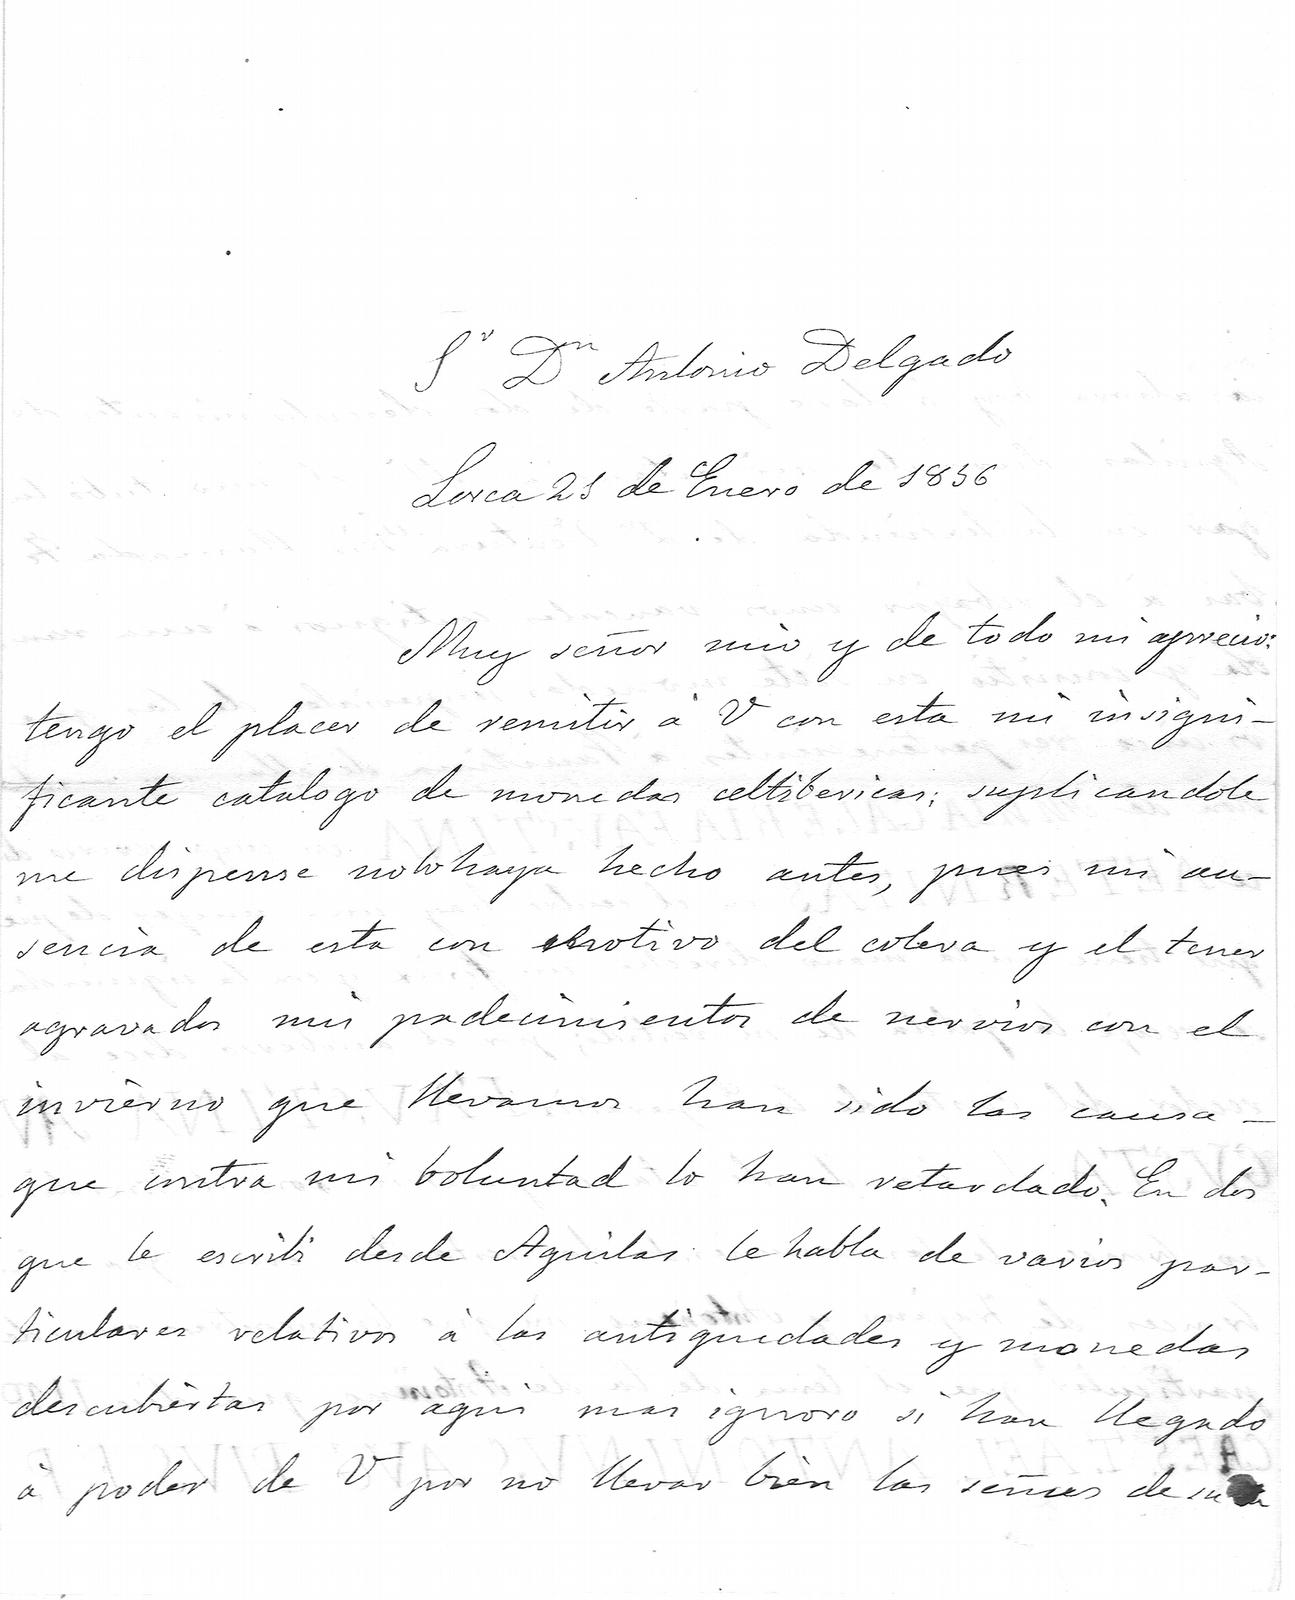 Sr Dn Antonio Delgado
Lorca 21 de Enero de 1856
Muy señor mio y de todo mi aprecio:
tengo el placer de remitir á V con esta mi insigni-
ficante catalogo de monedas celtibericas; suplicandole
me dispense no lo haya hecho antes, pues mi au-
sencia de esta con motivo del colera y el tener
agravados mis padecimientos de nervios con el
invierno que llevamos han sido las causa-
que contra mi voluntad lo han retardado. En dos
que le escribi desde Aguilas le habla de varios par-
ticulares relativos á las antiguedades y monedas
descubiertas por aqui mas ignoro si han llegado
á poder de V por no llevar bien las señas de su